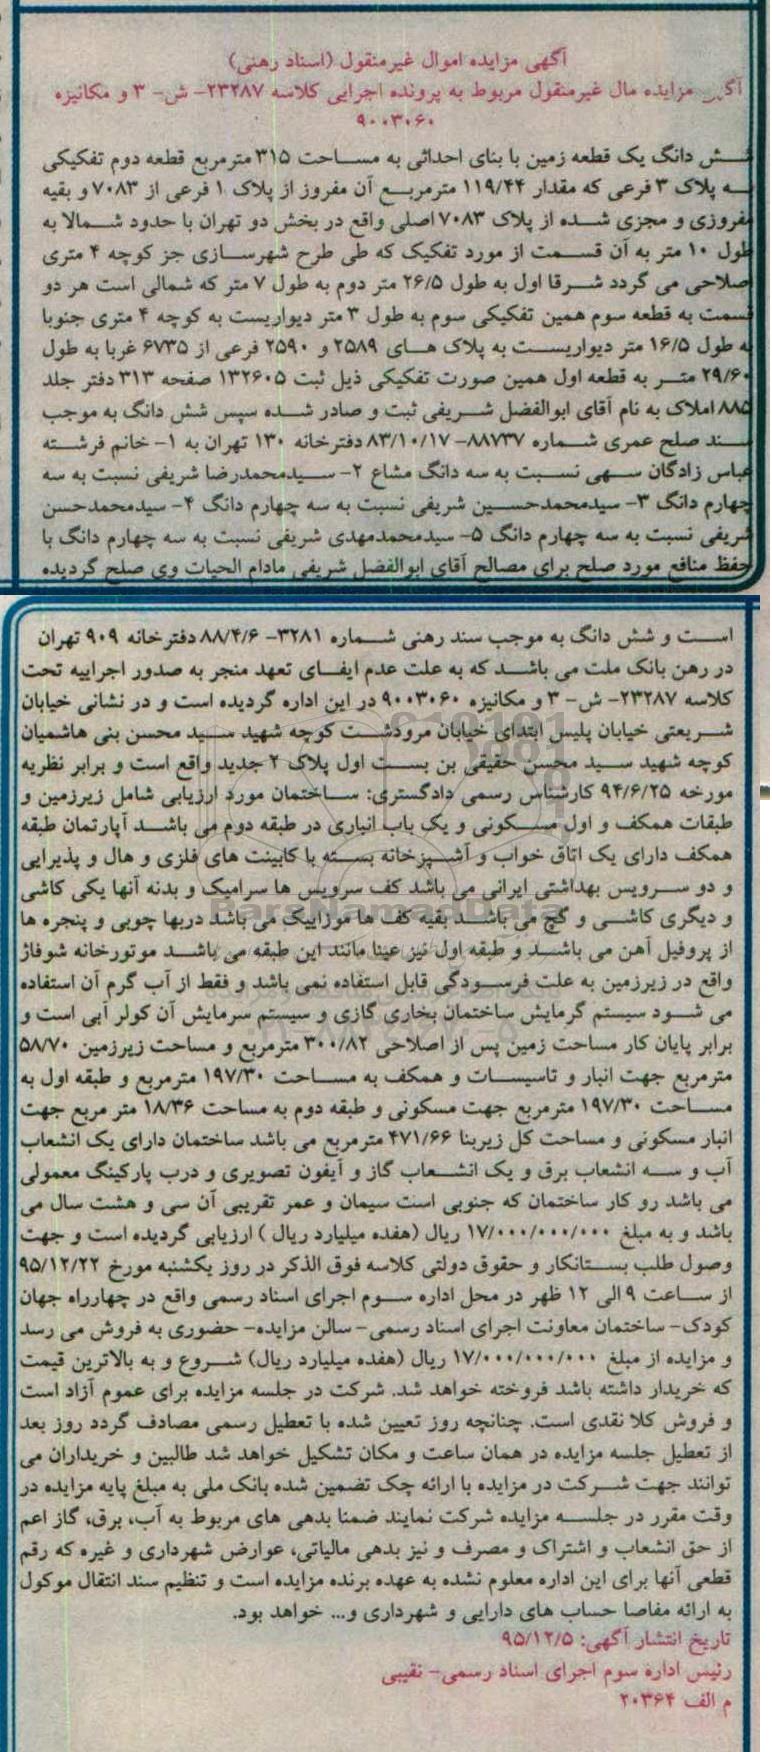 آگهی مزایده اموال غیرمنقول (اسناد رهنی)
آگهی مزایده مال غیرمنقول مربوط به پرونده اجرایی کلاسه ۲۳۲۸۷- ش- ۳ و مکانیزه
۹۰۰۳۰۶۰
شش دانگ یک قطعه زمین با بنای احداثی به مساحت ۳۱۵ مترمربع قطعه دوم تفکیکی
به پلاک ۳ فرعی که مقدار ۱۱۹/۴۴ مترمربع آن مفروز از پلاک ۱ فرعی از ۷۰۸۳ و بقیه
مفروزی و مجزی شده از پلاک ۷۰۸۳ اصلی واقع در بخش دو تهران با حدود شمالا به
طول ۱۰ متر به آن قسمت از مورد تفکیک که طی طرح شهرسازی جز کوچه ۴ متری
اصلاحی می گردد شرقا اول به طول ۲۶/۵ متر دوم به طول ۷ متر که شمالی است هر دو
قسمت به قطعه سوم همین تفکیکی سوم به طول ۳ متر دیواریست به کوچه ۴ متری جنوبا
به طول ۱۶/۵ متر دیواریست به پلاک های ۲۵۸۹ و ۲۵۹۰ فرعی از ۶۷۳۵ غربا به طول
۲۹/۶۰ متر به قطعه اول همین صورت تفکیکی ذیل ثبت ۱۳۲۶۰۵ صفحه ۳۱۳ دفتر جلد
۸۸۵ املاک به نام آقای ابوالفضل شریفی ثبت و صادر شده سپس شش دانگ به موجب
سند صلح عمری شماره ۸۸۷۳۷- ۸۳/۱۰/۱۷ دفترخانه ۱۳۰ تهران به ۱- خانم فرشته
عباس زادگان سهی نسبت به سه دانگ مشاع ۲- سیدمحمدرضا شریفی نسبت به سه
چهارم دانگ ۳- سیدمحمدحسین شریفی نسبت به سه چهارم دانگ ۴- سیدمحمدحسن
شریفی نسبت به سه چهارم دانگ ۵- سیدمحمدمهدی شریفی نسبت به سه چهارم دانگ با
حفظ منافع مورد صلح برای مصالح آقای ابوالفضل شریفی مادام الحیات وی صلح گردیده
است و شش دانگ به موجب سند رهنی شماره ۳۲۸۱- ۸۸/۴/۶ دفترخانه ۹۰۹ تهران
در رهن بانک ملت می باشد که به علت عدم ایفای تعهد منجر به صدور اجراییه تحت
کلاسه ۲۳۲۸۷- ش- ۳ و مکانیزه ۹۰۰۳۰۶۰ در این اداره گردیده است و در نشانی خیابان
شریعتی خیابان پلیس ابتدای خیابان مرودشت کوچه شهید سید محسن بنی هاشمیان
کوچه شهید سید محسن حقیقی بن بست اول پلاک ۲ جدید واقع است و برابر نظریه
مورخه ۹۴/۶/۲۵ کارشناس رسمی دادگستری: ساختمان مورد ارزیابی شامل زیرزمین و
طبقات همکف و اول مسکونی و یک باب انباری در طبقه دوم می باشد آپارتمان طبقه
همکف دارای یک اتاق خواب و آشپزخانه بسته با کابینت های فلزی و هال و پذیرایی
و دو سرویس بهداشتی ایرانی می باشد کف سرویس ها سرامیک و بدنه آنها یکی کاشی
و دیگری کاشی و گچ می باشد بقیه کف ها موزاییک می باشد دربها چوبی و پنجره ها
از پروفیل آهن می باشد و طبقه اول نیز عینا مانند این طبقه می باشد موتورخانه شوفاژ
واقع در زیرزمین به علت فرسودگی قابل استفاده نمی باشد و فقط از آب گرم آن استفاده
می شود سیستم گرمایش ساختمان بخاری گازی و سیستم سرمایش آن کولر آبی است و
برابر پایان کار مساحت زمین پس از اصلاحی ۳۰۰/۸۲ مترمربع و مساحت زیرزمین ۵۸/۷۰
مترمربع جهت انبار و تاسیسات و همکف به مساحت ۱۹۷/۳۰ مترمربع و طبقه اول به
مساحت ۱۹۷/۳۰ مترمربع جهت مسکونی و طبقه دوم به مساحت ۱۸/۳۶ متر مربع جهت
انبار مسکونی و مساحت کل زیربنا ۴۷۱/۶۶ مترمربع می باشد ساختمان دارای یک انشعاب
آب و سه انشعاب برق و یک انشعاب گاز و آیفون تصویری و درب پارکینگ معمولی
می باشد رو کار ساختمان که جنوبی است سیمان و عمر تقریبی آن سی و هشت سال می
باشد و به مبلغ ۱۷/۰۰۰/۰۰۰/۰۰۰ ریال (هفده میلیارد ریال ) ارزیابی گردیده است و جهت
وصول طلب بستانکار و حقوق دولتی کلاسه فوق الذکر در روز یکشنبه مورخ ۹۵/۱۲/۲۲
از ساعت ۹ الی ۱۲ ظهر در محل اداره سوم اجرای اسناد رسمی واقع در چهارراه جهان
کودک- ساختمان معاونت اجرای اسناد رسمی- سالن مزایده- حضوری به فروش می رسد
و مزایده از مبلغ ۱۷/۰۰۰/۰۰۰/۰۰۰ ریال (هفده میلیارد ریال) شروع و به بالاترین قیمت
که خریدار داشته باشد فروخته خواهد شد. شرکت در جلسه مزایده برای عموم آزاد است
و فروش کلا نقدی است. چنانچه روز تعیین شده با تعطیل رسمی مصادف گردد روز بعد
از تعطیل جلسه مزایده در همان ساعت و مکان تشکیل خواهد شد طالبین و خریداران می
توانند جهت شرکت در مزایده با ارائه چک تضمین شده بانک ملی به مبلغ پایه مزایده در
وقت مقرر در جلسه مزایده شرکت نمایند ضمنا بدهی های مربوط به آب، برق، گاز اعم
از حق انشعاب و اشتراک و مصرف و نیز بدهی مالیاتی، عوارض شهرداری و غیره که رقم
قطعی آنها برای این اداره معلوم نشده به عهده برنده مزایده است و تنظیم سند انتقال موکول
به ارائه مفاصا حساب های دارایی و شهرداری و... خواهد بود.
تاریخ انتشار آگهی: ۹۵/۱۲/۵
رئیس اداره سوم اجرای اسناد رسمی- نقیبی
م الف ۲۰۳۶۴
ParsNamadData